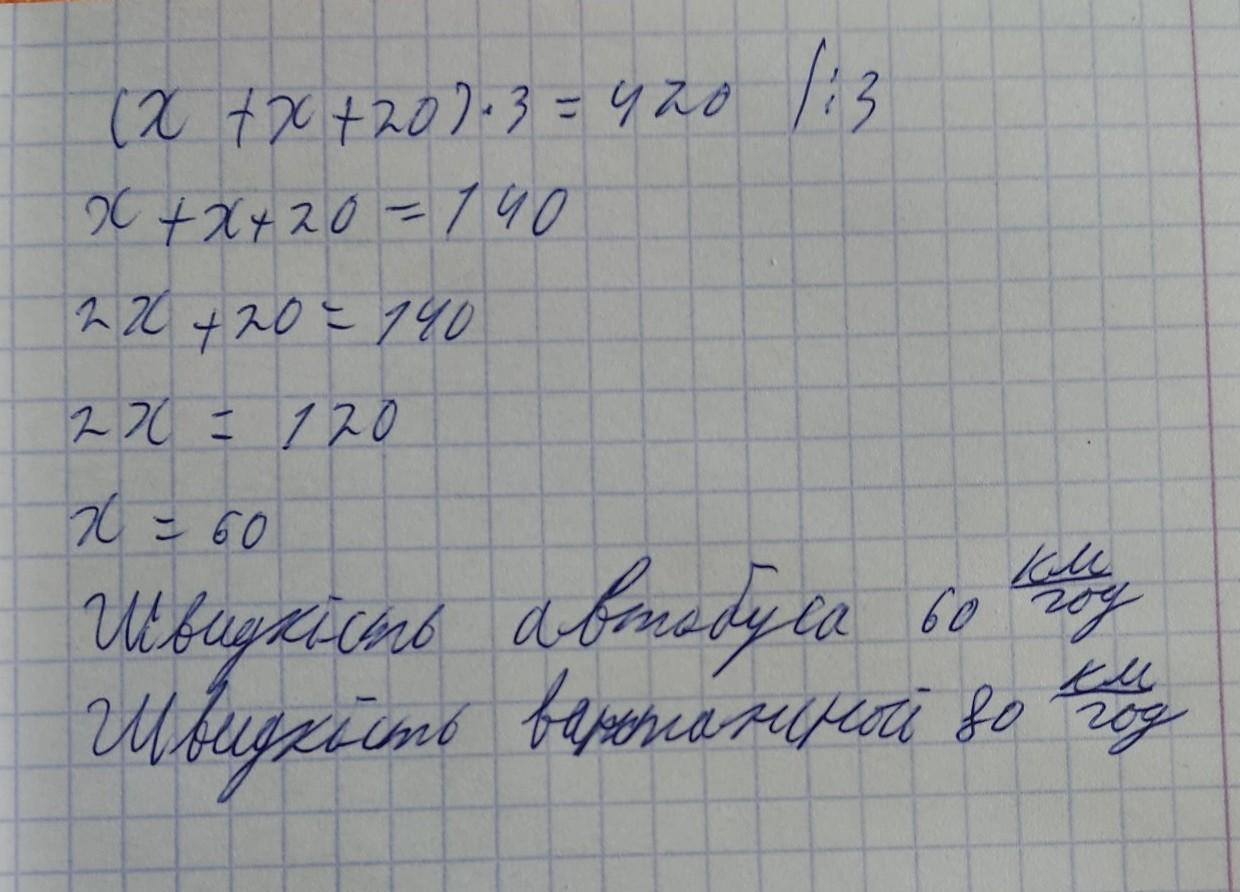 (x + x + 20) · 3 = 420 / : 3
x + x + 20 = 140
2x + 20 = 140
2x = 120
x = 60
Швидкість автобуса 60 км/год
Швидкість 80 км/год